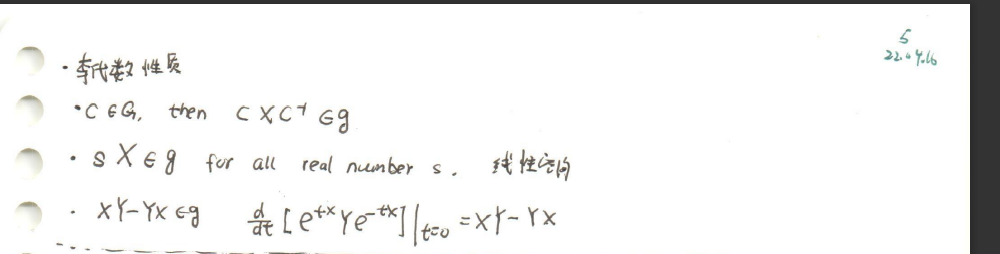 5
22.04.16
· 李代数性质
· C ∈ G, then C X C⁻¹ ∈ g
· s X ∈ g for all real number s. 线性空间
· XY-YX ∈ g d/dt [e^{tX} Y e^{-tX}]|_{t=0} = XY - YX